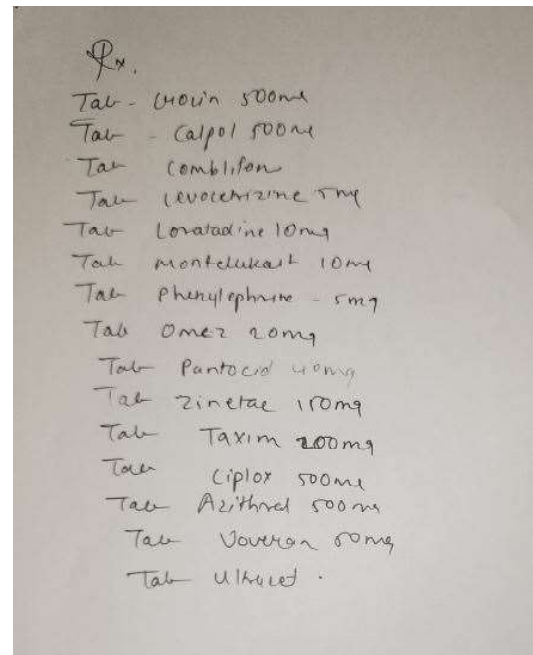 Rx.
Tab - Crocin 500mg
Tab - Calpol 500mg
Tab Combliflam
Tab Levocetrizine 5mg
Tab Loratadine 10mg
Tab Montelukast 10mg
Tab Phenylephrine - 5mg
Tab Omez 20mg
Tab Pantocid 40mg
Tab Zinetac 150mg
Tab Taxim 200mg
Tab Ciplox 500mg
Tab Azithral 500mg
Tab Voveran 50mg
Tab Ultracet .